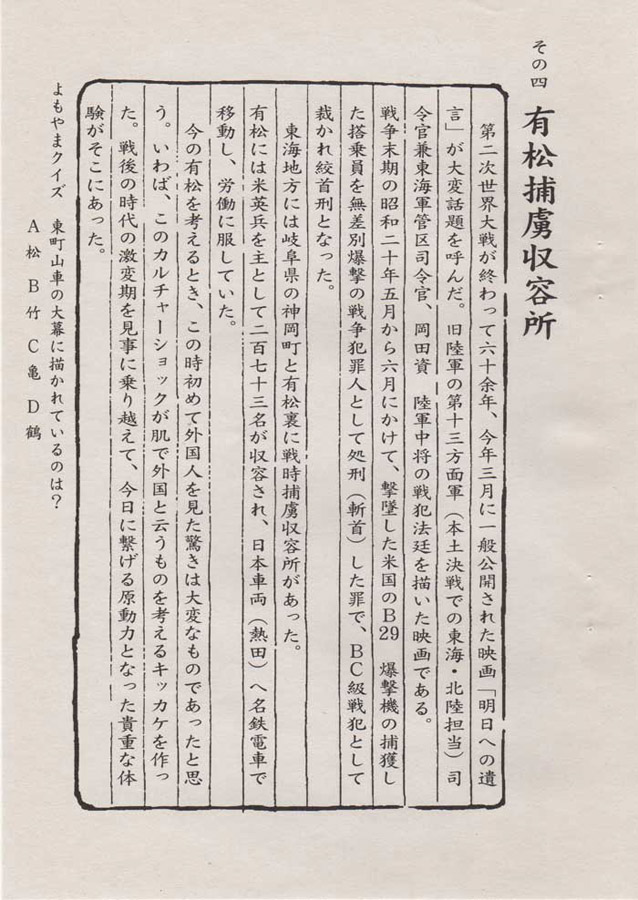 その四
有松捕虜収容所
第二次世界大戦が終わって六十余年、今年三月に一般公開された映画「明日への遺
言」が大変話題を呼んだ。旧陸軍の第十三方面軍（本土決戦での東海・北陸担当）司
令官兼東海軍管区司令官、岡田資 陸軍中将の戦犯法廷を描いた映画である。
戦争末期の昭和二十年五月から六月にかけて、撃墜した米国のB29 爆撃機の捕獲し
た搭乗員を無差別爆撃の戦争犯罪人として処刑（斬首）した罪で、BC級戦犯として
裁かれ絞首刑となった。
東海地方には岐阜県の神岡町と有松裏に戦時捕虜収容所があった。
有松には米英兵を主として二百七十三名が収容され、日本車両（熱田）へ名鉄電車で
移動し、労働に服していた。
今の有松を考えるとき、この時初めて外国人を見た驚きは大変なものであったと思
う。いわば、このカルチャーショックが肌で外国と云うものを考えるキッカケを作っ
た。戦後の時代の激変期を見事に乗り越えて、今日に繋げる原動力となった貴重な体
験がそこにあった。
よもやまクイズ 東町山車の大幕に描かれているのは？
A 松 B 竹 C 亀 D 鶴